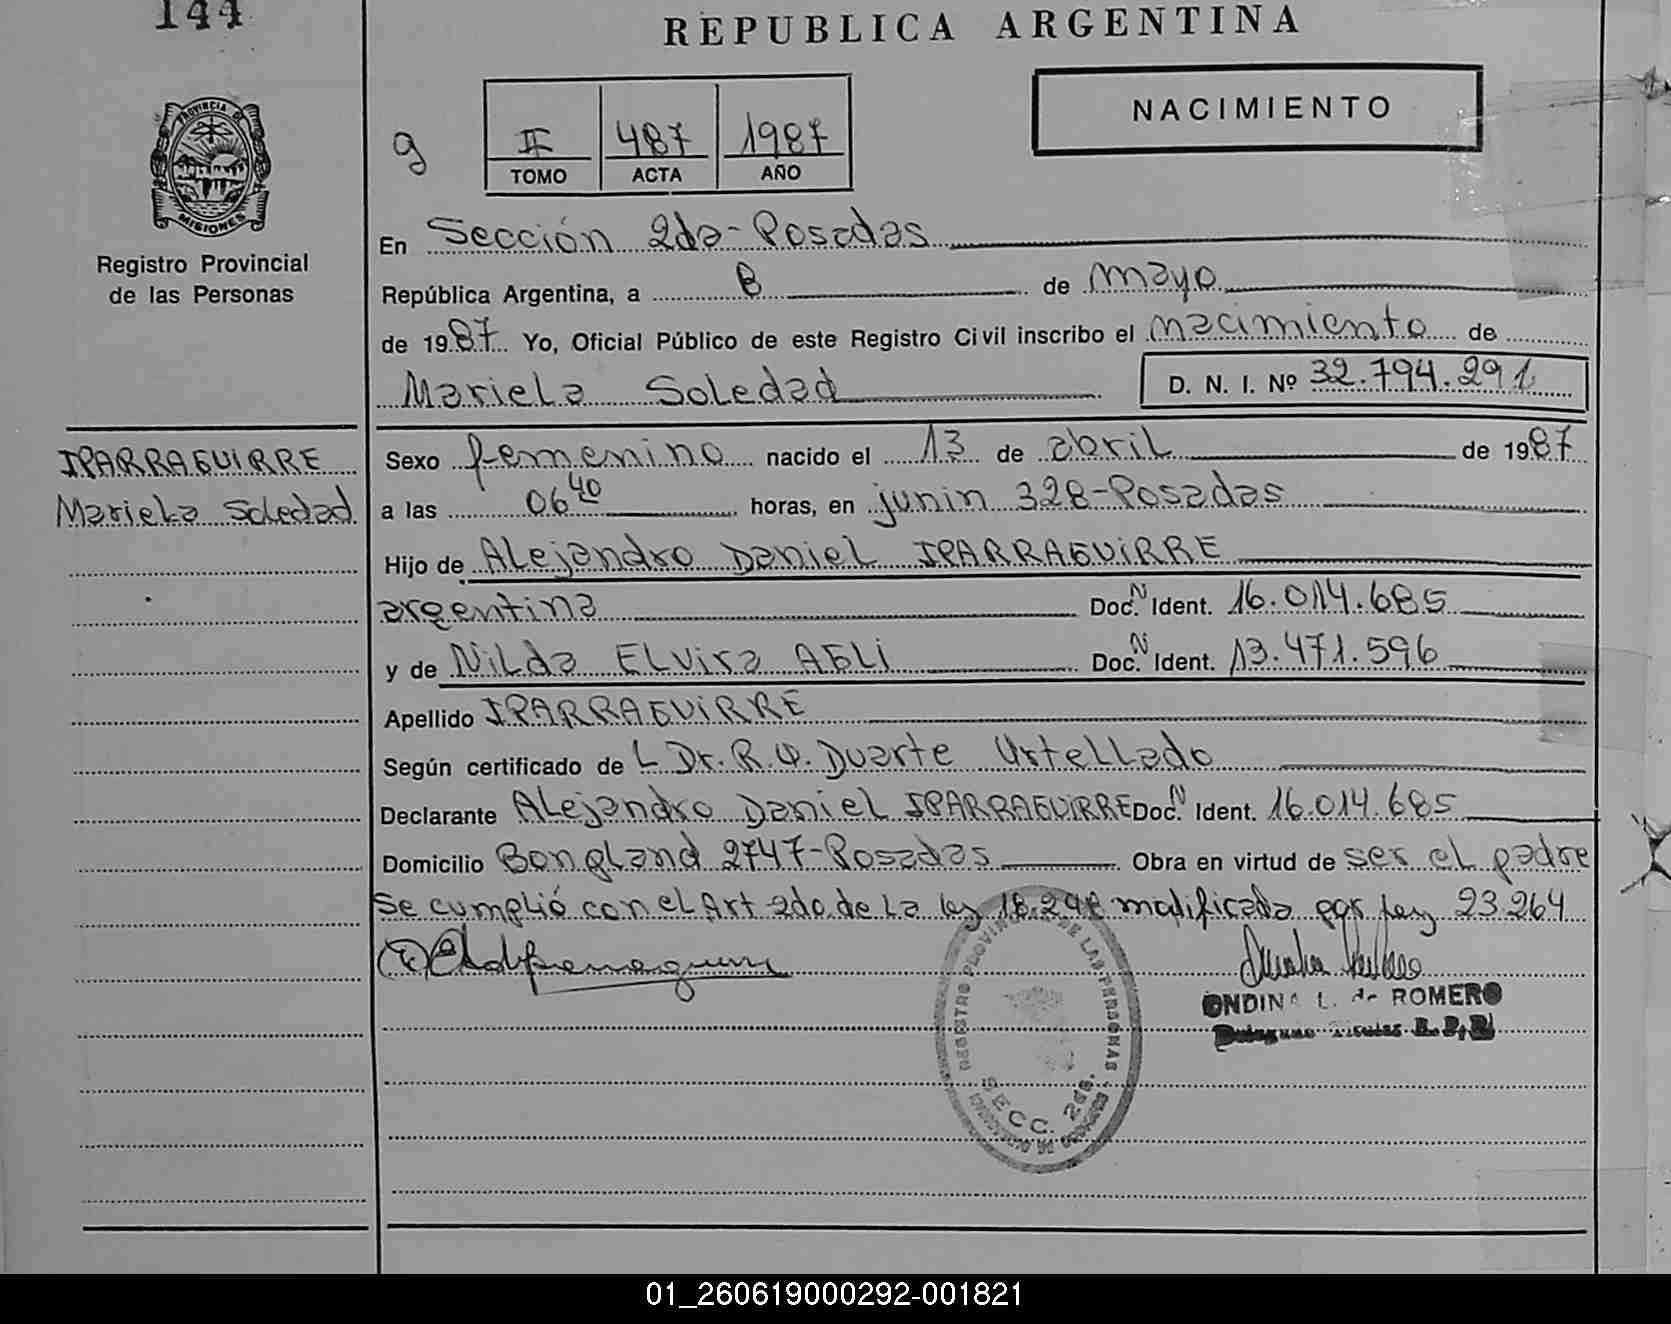 144
REPUBLICA ARGENTINA
NACIMIENTO
PROVINCIA DE
MISIONES
Registro Provincial
de las Personas
g
II 487 1987
TOMO ACTA AÑO
En Sección 2da-Posadas
República Argentina, a 8 de mayo
de 1987 Yo, Oficial Público de este Registro Civil inscribo el nacimiento de
Mariela Soledad D. N. I. Nº 32.794.291
IPARRAGUIRRE
Mariela Soledad
Sexo femenino nacido el 13 de abril de 1987
a las 06 40 horas, en junin 328-Posadas
Hijo de Alejandro Daniel IPARRAGUIRRE
argentina Doc. N Ident. 16.014.685
y de Nilda Elvira AGLI Doc. N Ident. 13.471.596
Apellido IPARRAGUIRRE
Según certificado de L Dr. R. Duarte Urtellado
Declarante Alejandro Daniel IPARRAGUIRRE Doc. N Ident. 16.014.685
Domicilio Bongland 2747-Posadas Obra en virtud de ser el padre
Se cumplió con el Art 2do de la ley 18.248 modificada por ley 23.264
ONDINA L. de ROMERO
REGISTRO PROVINCIAL DE LAS PERSONAS
SECC. 2da.
01_260619000292-001821